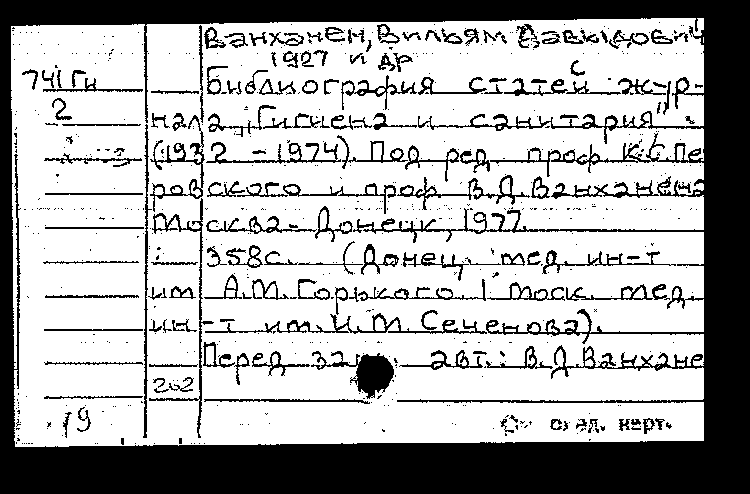 Ванханен, Вильям Давыдович
1927 и др
741 Ги
Библиография статей с жур-
2
нала „Гигиена и санитария"
(1932 - 1974). Под ред. проф. К.С. Пе
ровского и проф. В.Д. Ванханена
Москва - Донецк, 1977.
358с. (Донец. мед. ин-т
им А.М. Горького. I моск. мед.
ин-т им. И.М. Сеченова).
Перед загл. авт.: В.Д. Ванхане
262
19
след. карт.